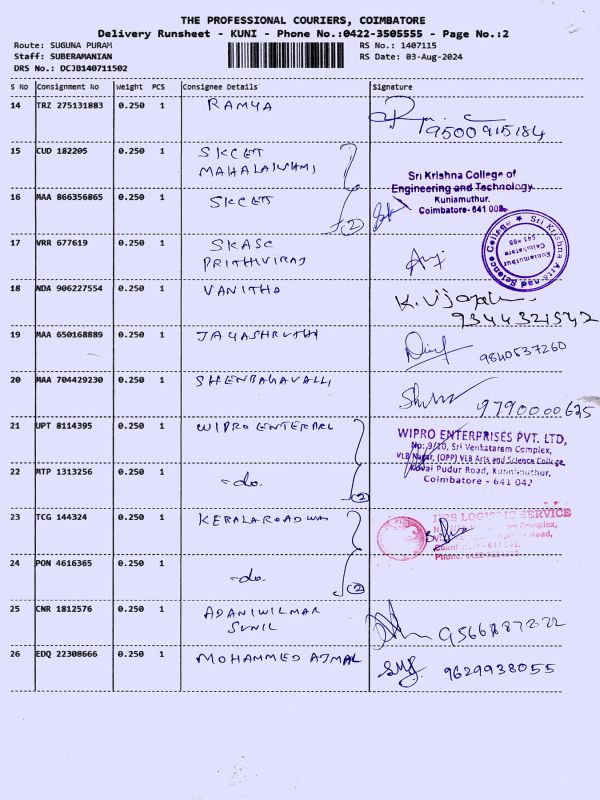 THE PROFESSIONAL COURIERS, COIMBATORE
Delivery Runsheet - KUNI - Phone No.:0422-3505555 - Page No.:2
Route: SUGUNA PURAM RS No.: 1407115
Staff: SUBERAMANIAN RS Date: 03-Aug-2024
DRS No.: DCJB140711502
S No Consignment No Weight PCS Consignee Details Signature
14 TRZ 275131883 0.250 1 RAMYA
9500915184
15 CUD 182205 0.250 1 SKCET
MAHALAKSHMI
Sri Krishna College of
Engineering and Technology
Kuniamuthur,
Coimbatore- 641 008.
16 MAA 866356865 0.250 1 SKCET
(2)
17 VRR 677619 0.250 1 SKASC
PRITHIVIRAJ
Sri Krishna Arts and Science College
Kuniamuthur
Coimbatore
18 NDA 906227554 0.250 1 VANITHA
9344321542
19 MAA 650168889 0.250 1 JAYASHRUTHI
9840537260
20 MAA 704429230 0.250 1 SHENBAGAVALLI
9790000635
21 UPT 8114395 0.250 1 WIPRO ENTERPRI
WIPRO ENTERPRISES PVT. LTD,
No: 9/10, Sri Venkataram Complex,
VLB Nagar, (OPP) VLB Arts and Science College,
Kovai Pudur Road, Kuniamuthur,
Coimbatore - 641 042
22 MTP 1313256 0.250 1 -do.
(2)
23 TCG 144324 0.250 1 KERALA ROADWAS
LOGISTIC SERVICE
Complex,
Road,
641 042.
Phone:
24 PON 4616365 0.250 1 -do.
(2)
25 CNR 1812576 0.250 1 ADANIWILMAR
SUNIL
26 EDQ 22308666 0.250 1 MOHAMMED AJMAL
9629938055